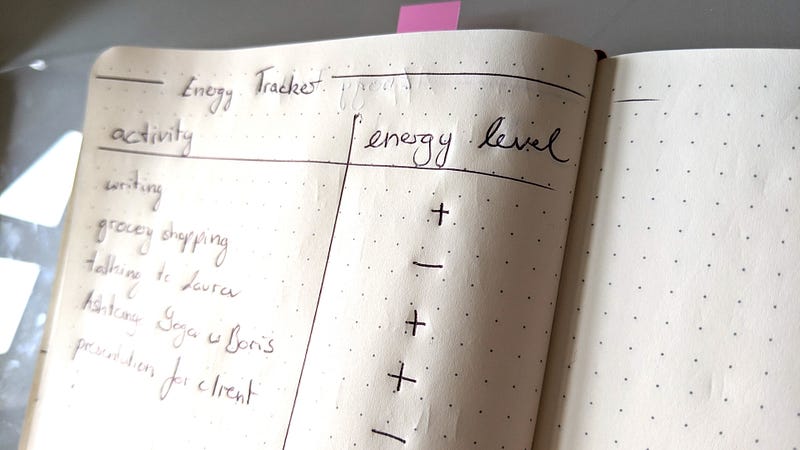 Energy Tracker
activity energy level
writing +
grocery shopping —
talking to Laura +
Ashtanga Yoga w Boris +
presentation for client —